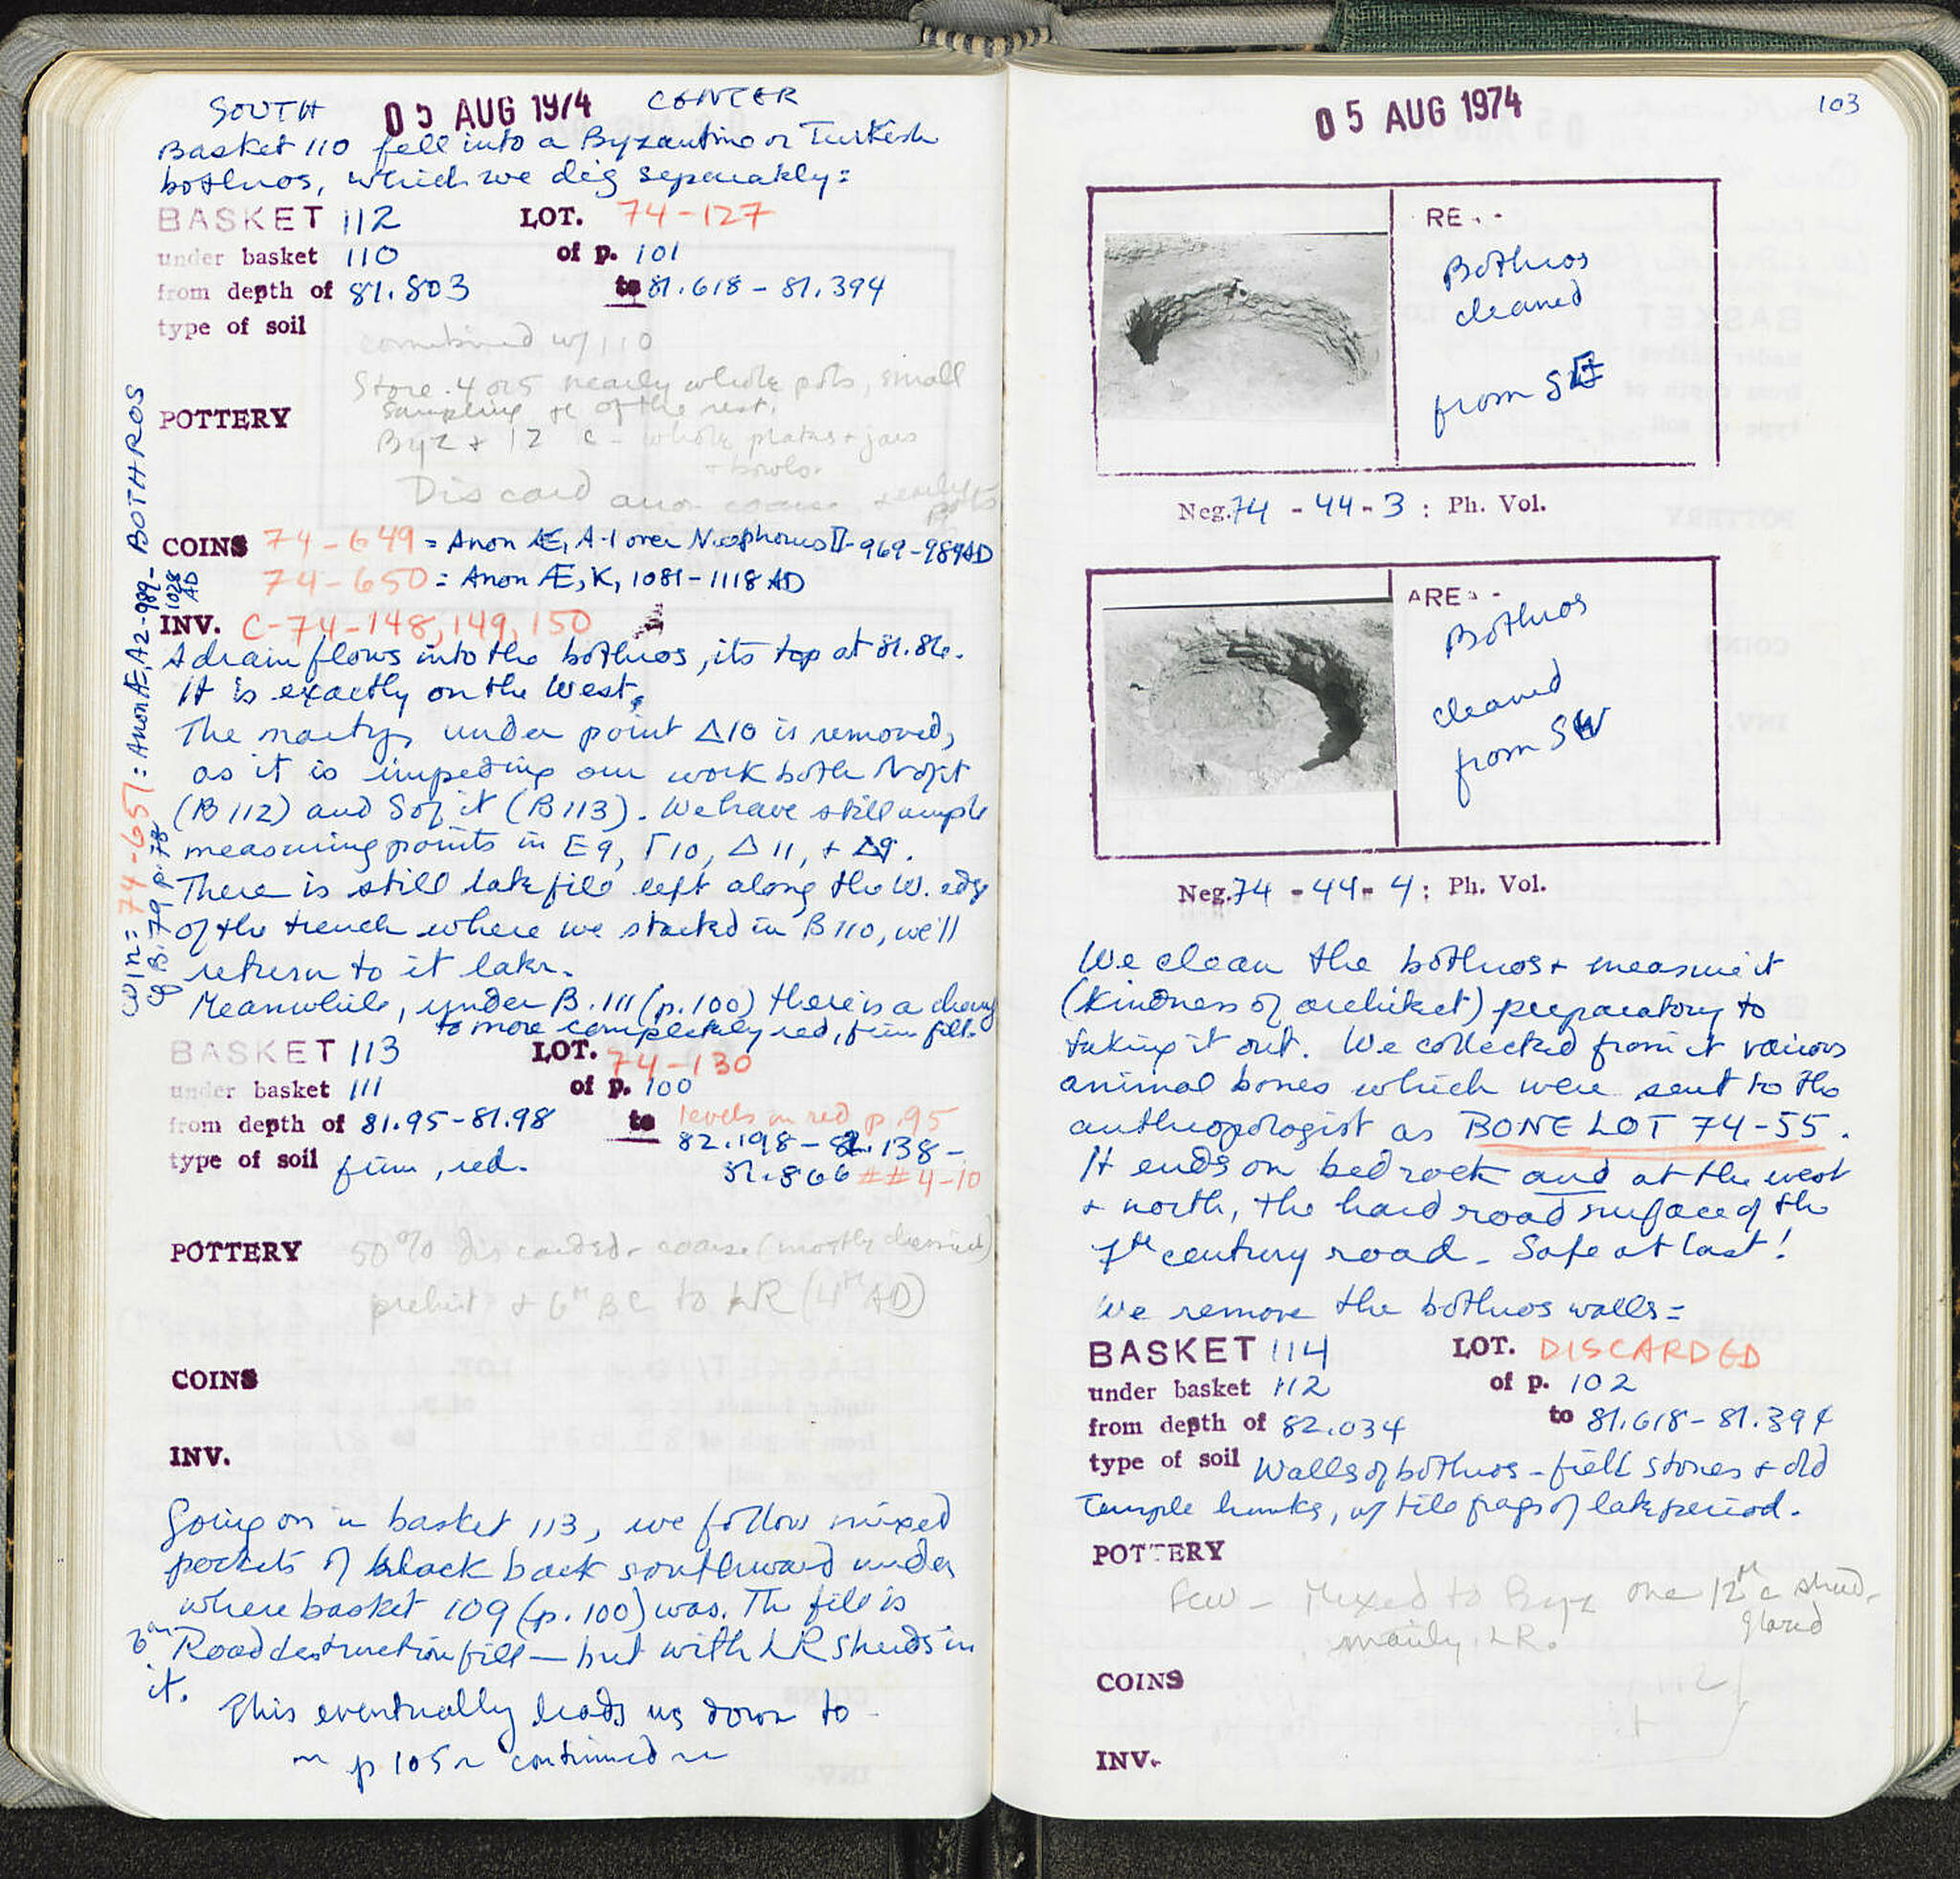 SOUTH 05 AUG 1974 CENTER
Basket 110 fell into a Byzantine or Turkish
bothros, which we dig separately:
BASKET 112 LOT. 74-127
under basket 110 of p. 101
from depth of 81.803 to 81.618 - 81.394
type of soil
combined w/ 110
Store. 4 or 5 nearly whole pots, small
sampling of the rest.
POTTERY
Byz + 12 c - whole plates + jars
+ bowls.
Discard coarse + early
COINS 74-649 = Anon Æ, A-1 over Nicephorus II - 969-989 AD
74-650 = Anon Æ, K, 1081-1118 AD
INV. C-74-148, 149, 150
A drain flows into the bothros, its top at 81.86.
It is exactly on the West.
The under point Δ10 is removed,
as it is impeding our work both N of it
(B 112) and S of it (B 113). We have still ample
measuring points in E9, Γ10, Δ11, + Δ9.
There is still late fill left along the W. edge
of the trench where we started in B 110, we'll
return to it later.
Meanwhile, under B. 111 (p. 100) there is a change
to more completely red, firm fill.
coin = 74-651 : Anon Æ, A2 - 989-1028 AD - BOTHROS
of B. 79 p. 78
BASKET 113 LOT. 74-130
under basket 111 of p. 100
from depth of 81.95-81.98 to levels in red p. 95
82.198 - 82.138 -
type of soil firm, red. 81.866 ##4-10
POTTERY 50% discarded - coarse (mostly classical)
prehist + 6th BC to LR (4th AD)
COINS
INV.
Going on in basket 113, we follow mixed
pockets of black back southward under
where basket 109 (p. 100) was. The fill is
Road destruction fill — but with LR sherds in
it.
This eventually leads us down to -
~ p 105 ~ continued ~
05 AUG 1974 103
RE
Bothros
cleaned
from SE
Neg. 74 - 44 - 3 : Ph. Vol.
ARE
Bothros
cleaned
from SW
Neg. 74 - 44 - 4 : Ph. Vol.
We clean the bothros + measure it
(kindness of architect) preparatory to
taking it out. We collected from it various
animal bones which were sent to the
anthropologist as BONE LOT 74-55.
It ends on bedrock and at the west
+ north, the hard road surface of the
7th century road - Safe at last!
We remove the bothros walls =
BASKET 114 LOT. DISCARDED
under basket 112 of p. 102
from depth of 82.034 to 81.618 - 81.394
type of soil Walls of bothros - field stones + old
temple hunks, w/ tile frags of late period.
POTTERY
few - Mixed to Byz one 12th c sherd -
mainly LR. glazed
COINS
INV.